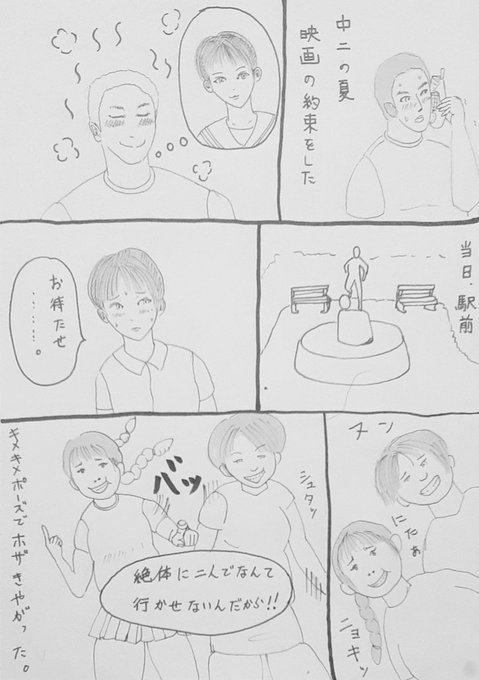 中二の夏
映画の約束をした
当日、駅前
お待たせ
………。
ヌン
にたぁ
ニョキッ
シュタッ
バッ
絶体に二人でなんて
行かせないんだから!!
キメキメポーズでホザきやがった。